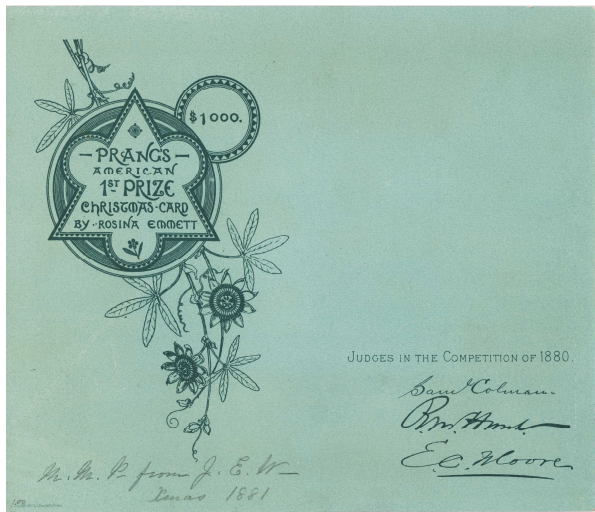 $1000.
PRANG'S
AMERICAN
1ST PRIZE
CHRISTMAS-CARD
BY-ROSINA EMMETT
JUDGES IN THE COMPETITION OF 1880.
Saml Colman.
R. M. Hunt
E. C. Moore
M. M. P. from J. E. W-
Xmas 1881